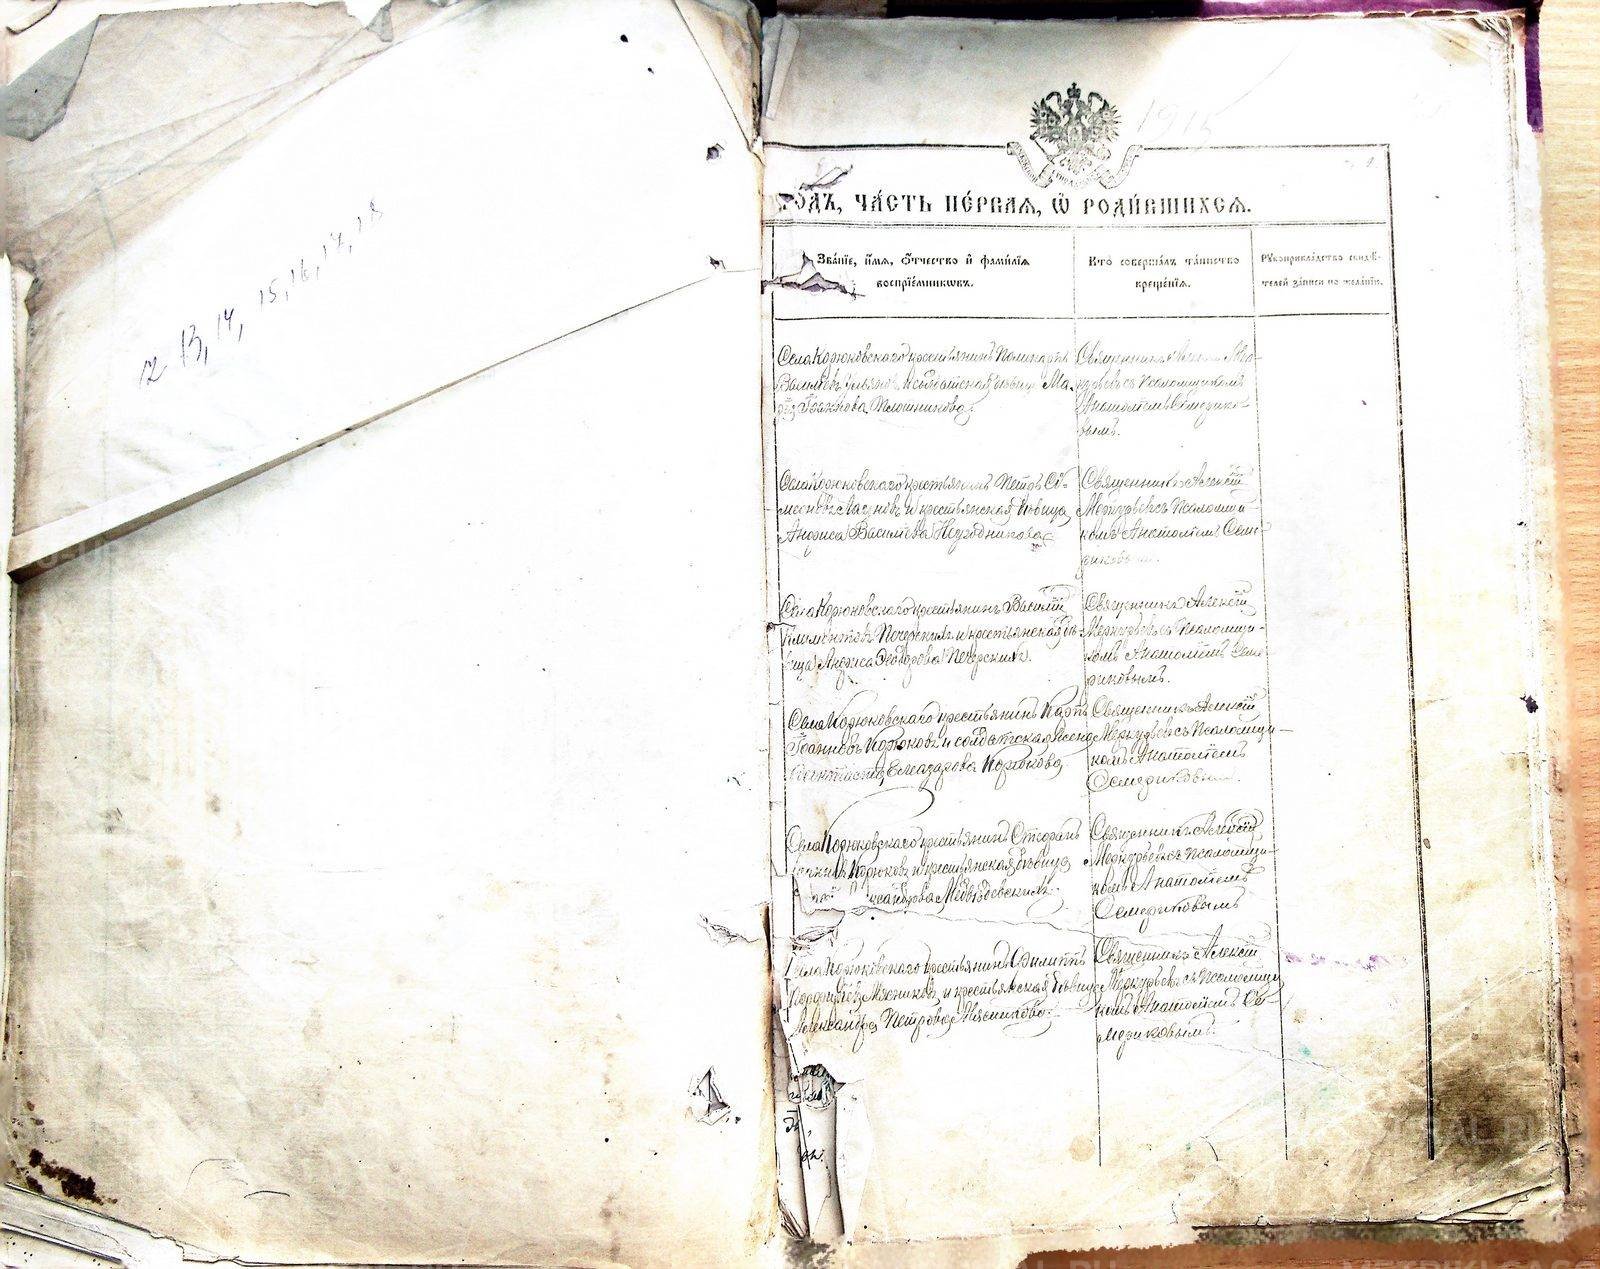 12 13, 14, 15, 16, 17, 18
1915
годъ, ча́сть пе́рвая, ѡ҆ роди́вшихсѧ.
Зва́нїе, и҆́мѧ, ѻ҆́тчество и҆ фами́лїѧ
воспрїе́мникѡвъ.
Кто̀ соверша́лъ та́инство
креще́нїѧ.
Рꙋкоприкла́дство свидѣ́-
телей за́писи по жела́нїю.
Села Корюковскаго крестьянинъ Поликарпъ
Васильевъ и солдатская Ма-
рія Іоаннова
Священникъ Алексій Мер-
курьевъ съ Псаломщикомъ
Анатоліемъ Семерико-
вымъ.
Села Корюковскаго крестьянинъ Петръ Си-
меоновъ и крестьянская дѣвица
Анфиса Васильева
Священникъ Алексій
Меркурьевъ съ Псаломщи-
комъ Анатоліемъ Семе-
риковымъ.
Села Корюковскаго крестьянинъ Василій
Климентовъ Печерскихъ и крестьянская дѣ-
вица Анфиса Ѳеодорова Печерскихъ.
Священникъ Алексій
Меркурьевъ съ Псаломщи-
комъ Анатоліемъ Семе-
риковымъ.
Села Корюковскаго крестьянинъ Карпъ
Іоанновъ Корюковъ и солдатская жена
Елеазарова Корюкова
Священникъ Алексій
Меркурьевъ съ Псаломщи-
комъ Анатоліемъ
Семериковымъ.
Села Корюковскаго крестьянинъ Стефанъ
Корюковъ и крестьянская дѣвица
Медвѣдевскихъ.
Священникъ Алексій
Меркурьевъ съ Псаломщи-
комъ Анатоліемъ
Семериковымъ
Села Корюковскаго крестьянинъ Филиппъ
Порфирьевъ Мясниковъ и крестьянская дѣвица
Александра Петрова Мясникова.
Священникъ Алексій
Меркурьевъ съ Псаломщи-
комъ Анатоліемъ Се-
мериковымъ.